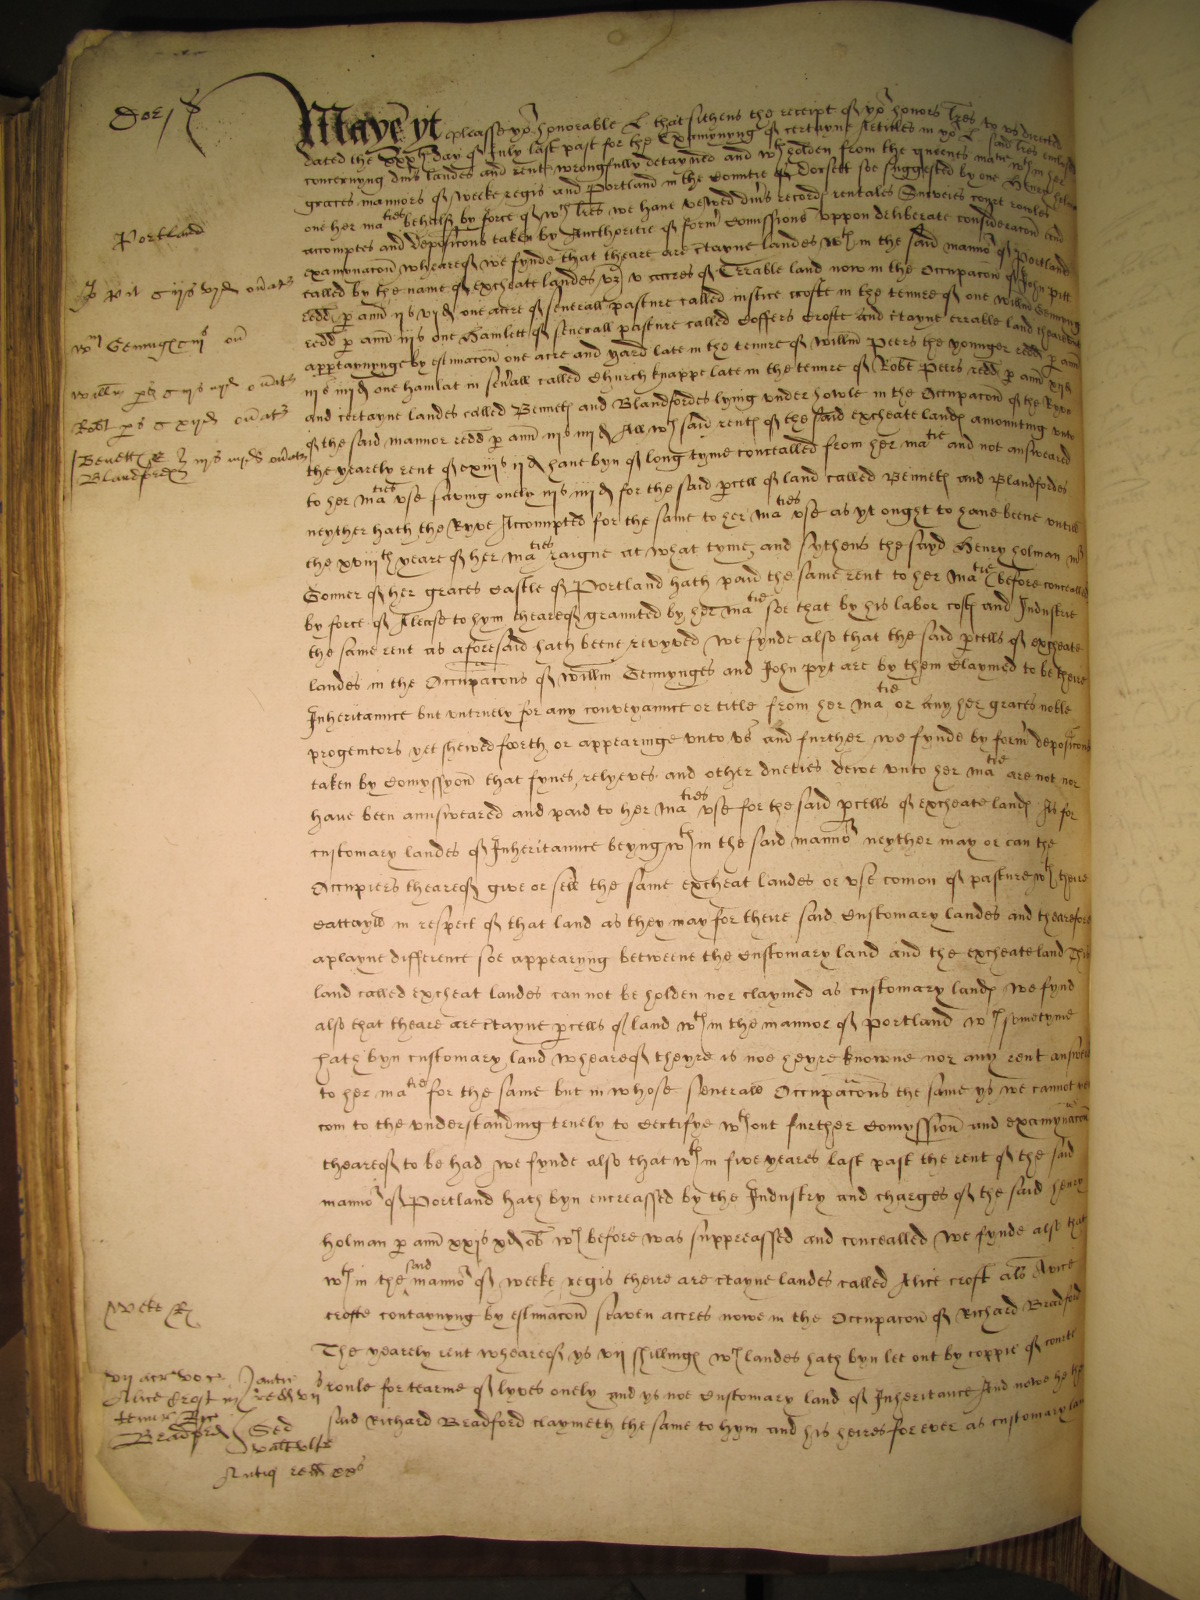 Dors
Maye yt please yor honorable L that sithens the receipt of yor honors lres to us directed
dated the xxxth day of July last past for the Examynyng of certayne Articles in yor L said lres enclosed
concernyng divs landes and rents wrongfully detayned and wthholden from the queenes matie wthin her
graces mannors of Weeke regis and Portland in the Countie of Dorsett soe suggested by one Henry holman
one her maties behalf by force of wch lres we have vewed divs records rentales Surveies court rowles
accomptes and deposicons taken by Aucthoritie of formr Comissions uppon deliberate consideracon and
Portland
examynacon wheareof we fynde that theare are ctayne landes wthin the said mannor of Portland
called by the name of excheate landes vz v accres of Errable land now in the Occupacon of John Pitt
Jo Pit iis vid
redd p ann iis vid one acre of severall pasture called Justice croste in the tenure of one Willm Gemyng
redd p ann iiis one Hamlett of severall pasture called Coffers Croste and ctayne errable land theareunto
wm Gemynges iiis
appertaynynge by estimacon one acre and yard late in the tenure of Willm Peers the younger redd p ann
iiis iiiid one hamlat in sevall called Church knappe late in the tenure of Robt Peers redd p ann xiid
Willm ps
and certayne landes called Bennets and Blandfordes lying under howle in the Occupacon of the Ryve
Robt ps xiid
of the said mannor redd p ann iiis iiiid All wch said rents of the said excheate lands amounting unto
Benetts & Blandfordes iiis iiiid
the yearely rent of xiiis iid have byn of long tyme concealled from her matie and not answeared
to her maties use saving onely iiis iiiid for the said pcell of land called Bennets and Blandfordes
neyther hath the Ryve Accompted for the same to her maties use as yt ought to have beene untill
the xviiith yeare of her maties raigne at what tyme and sythens the sayd Henry holman
Gonner of her graces Castle of Portland hath paid the same rent to her matie before concealled
by force of A lease to hym theareof graunted by her matie soe that by his labor costs and Industrie
the same rent as aforesaid hath beene revyved We fynde also that the said pcells of excheate
landes in the Occupacons of Willm Gemynges and John pyt are by them Claymed to be theire
Inheritaunce but untruely for any conveyaunce or title from her matie or any her graces noble
progenitors yet shewed foorth or appearinge unto us And further we fynde by formr deposicons
taken by Comyssyon that fynes, relyeves and other dueties dewe unto her matie are not nor
have been aunsweared and paid to her maties use for the said pcells of excheate lands As for
customary landes of Inheritaunce beyng wthin the said mannor neyther may or can the
Occupiers theareof give or sell the same excheat landes or use comon of pasture wth theire
Cattayll in respect of that land as they may for theire said Customary landes and thearefore
a playne difference soe appearyng betweene the Customary land and the excheate land This
land called excheat landes can not be holden nor claymed as customary lands We fynd
also that theare are ctayne pcells of land wthin the mannor of Portland wch sometyme
hath byn customary land wheareof theyre is noe heyre knowne nor any rent answered
to her matie for the same but in whose severall Occupacons the same ys we cannot yet
com to the understanding truely to Certifye wthout further Comyssion and examynacon
theareof to be had We fynde also that wthin five yeares last past the rent of the said
mannor of Portland hath byn encreassed by the Industry and charges of the said henry
holman p ann xxis xd ob wch before was suppreassed and concealled We fynde also that
wthin the said mannor of weeke regis theire are ctayne landes called Alice croft als Avice
Weke R
crofte contaynyng by estimacon seaven accres nowe in the Occupacon of Richard Bradford
The yearely rent wheareof ys vii shillings wch landes hath byn let out by coppie of courte
vii acr voc
Alice Croft in
tenur Ric
Bradford
antiq redd viis
Sed
Antiq redd xxs
roule for tearme of lyves onely and ys noe Customary land of Inheritance And nowe he the
said Richard Bradford claymeth the same to hym and his heires for ever as customary lan